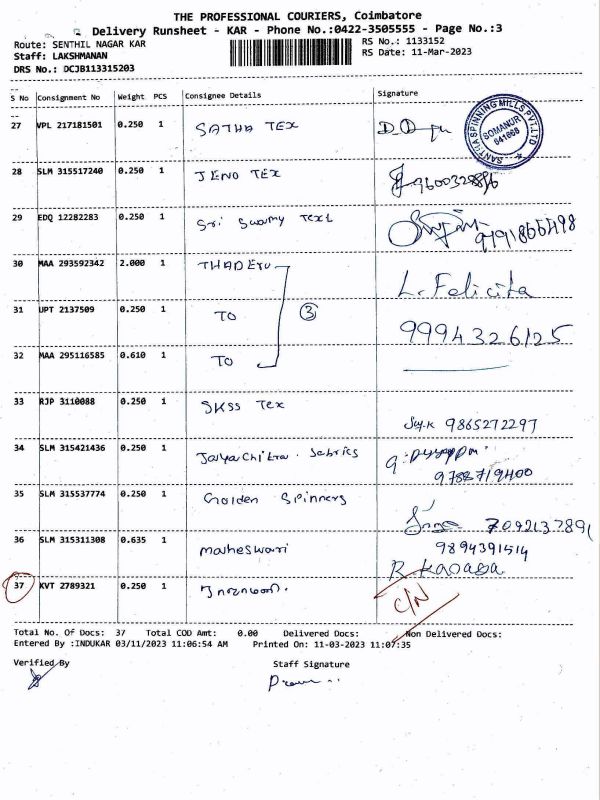 THE PROFESSIONAL COURIERS, Coimbatore
Delivery Runsheet - KAR - Phone No.:0422-3505555 - Page No.:3
Route: SENTHIL NAGAR KAR RS No.: 1133152
Staff: LAKSHMANAN RS Date: 11-Mar-2023
DRS No.: DCJB113315203
S No Consignment No Weight PCS Consignee Details Signature
27 VPL 217181501 0.250 1 SATHA TEX
SANTILA SPINNING MILLS PVT.LTD SOMANUR 641668
28 SLM 315517240 0.250 1 JENO TEX
29 EDQ 12282283 0.250 1 Sri Swamy Text
30 MAA 293592342 2.000 1 L. Felicita
31 UPT 2137509 0.250 1 TO ③ 9994326125
32 MAA 295116585 0.610 1 TO
33 RJP 3110088 0.250 1 SKSS Tex 9865272297
34 SLM 315421436 0.250 1
35 SLM 315537774 0.250 1 Golden Spinners
36 SLM 315311308 0.635 1 Maheswari 9894391514
37 KVT 2789321 0.250 1 C/N
Total No. Of Docs: 37 Total COD Amt: 0.00 Delivered Docs: Non Delivered Docs:
Entered By :INDUKAR 03/11/2023 11:06:54 AM Printed On: 11-03-2023 11:07:35
Verified By Staff Signature